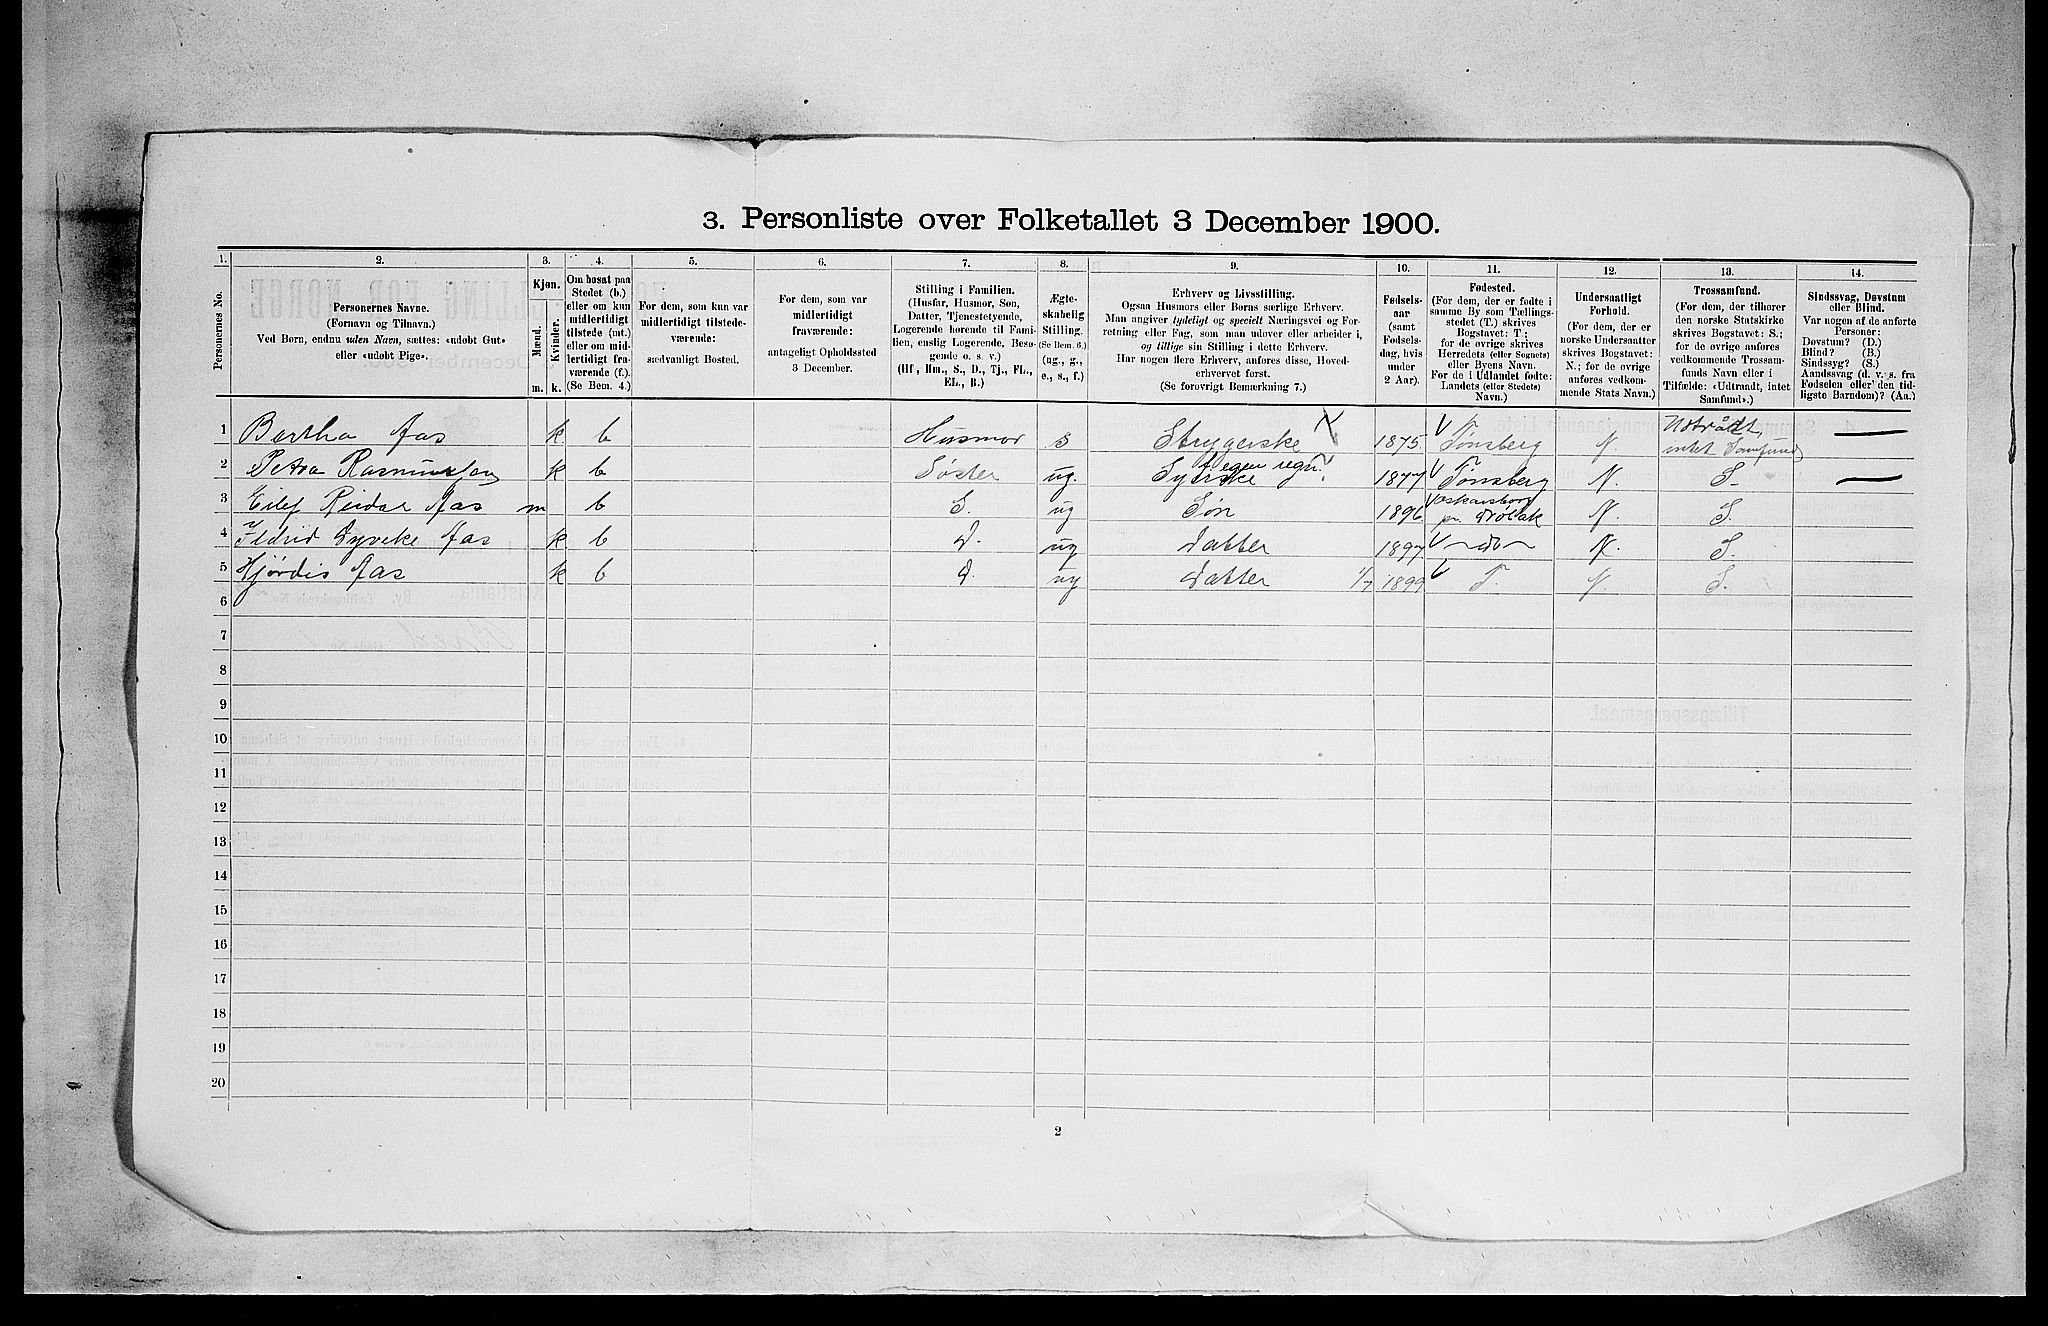 3. Personliste over Folketallet 3 December 1900.
1. 2. 3. 4. 5. 6. 7. 8. 9. 10. 11. 12. 13. 14.
Personernes No.
Personernes Navne.
(Fornavn og Tilnavn.)
Ved Børn, endnu uden Navn, sættes: «udøbt Gut»
eller «udøbt Pige».
Kjøn.
Mænd.
Kvinder.
m. k.
Om bosat paa
Stedet (b.)
eller om kun
midlertidigt
tilstede (mt.)
eller om mid-
lertidigt fra-
værende (f.).
(Se Bem. 4.)
For dem, som kun var
midlertidigt tilstede-
værende:
sædvanligt Bosted.
For dem, som var
midlertidigt
fraværende:
antageligt Opholdssted
3 December.
Stilling i Familien.
(Husfar, Husmor, Søn,
Datter, Tjenestetyende,
Logerende hørende til Fami-
lien, enslig Logerende, Besø-
gende o. s. v.)
(Hf., Hm., S., D., Tj., FL.,
EL., B.)
Ægte-
skabelig
Stilling.
(Se Bem. 6.)
(ug., g.,
e., s., f.)
Erhverv og Livsstilling.
Ogsaa Husmors eller Børns særlige Erhverv.
Man angiver tydeligt og specielt Næringsvei og For-
retning eller Fag, som man udøver eller arbeider i,
og tillige sin Stilling i dette Erhverv.
Har nogen flere Erhverv, anføres disse, Hoved-
erhvervet først.
(Se forøvrigt Bemærkning 7.)
Fødsels-
aar
(samt
Fødsels-
dag, hvis
under
2 Aar).
Fødested.
(For dem, der er fødte i
samme By som Tællings-
stedet (T.) skrives
Bogstavet: T.;
for de øvrige skrives
Herredets (eller Sognets)
eller Byens Navn.
For de i Udlandet fødte:
Landets (eller Stedets)
Navn.)
Undersaatligt
Forhold.
(For dem, der er
norske Undersaatter
skrives Bogstavet:
N.; for de øvrige
anføres vedkom-
mende Stats Navn.)
Trossamfund.
(For dem, der tilhører
den norske Statskirke
skrives Bogstavet: S.;
for de øvrige anføres
vedkommende Trossam-
funds Navn eller i
Tilfælde: «Udtraadt, intet
Samfund».)
Sindssvag, Døvstum
eller Blind.
Var nogen af de anførte
Personer:
Døvstum? (D.)
Blind? (B.)
Sindssyg? (S.)
Aandssvag (d. v. s. fra
Fødselen eller den tid-
ligste Barndom)? (Aa.)
1 Bertha Aas k b Husmor s Strygerske 1875 Tønsberg N. Udtrådt, intet Samfund —
2 Petra Rasmussen k b Søster ug. Syerske f egen regn. 1877 Tønsberg N. S. —
3 Eilef Reidar Aas m b S. ug Søn 1896 Oskarsborg pr. Drøbak N. S.
4 Ildrid Dyveke Aas k b D. ug Datter 1897 do N. S.
5 Hjørdis Aas k b d. ug Datter 1/7 1899 T. N. S.
6
7
8
9
10
11
12
13
14
15
16
17
18
19
20
2